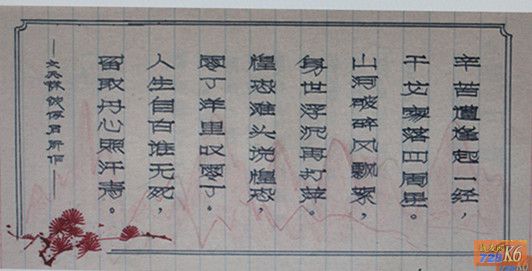 辛苦遭逢起一经，
干戈寥落四周星。
山河破碎风飘絮，
身世浮沉雨打萍。
惶恐滩头说惶恐，
零丁洋里叹零丁。
人生自古谁无死，
留取丹心照汗青。
—文天祥 俘 所作—
K6